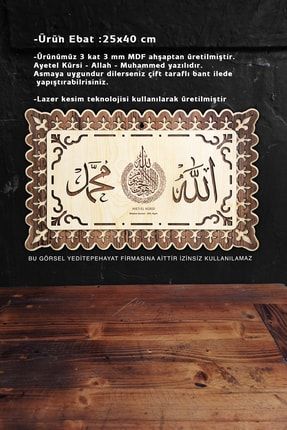 -Ürün Ebat :25x40 cm
-Ürünümüz 3 kat 3 mm MDF ahşaptan üretilmiştir.
Ayetel Kürsi - Allah - Muhammed yazılıdır.
Asmaya uygundur dilerseniz çift taraflı bant ilede
yapıştırabilrisiniz.
-Lazer kesim teknolojisi kullanılarak üretilmiştir
محمد
الله
AYET-EL KÜRSİ
BU GÖRSEL YEDİTEPEHAYAT FİRMASINA AİTTİR İZİNSİZ KULLANILAMAZ